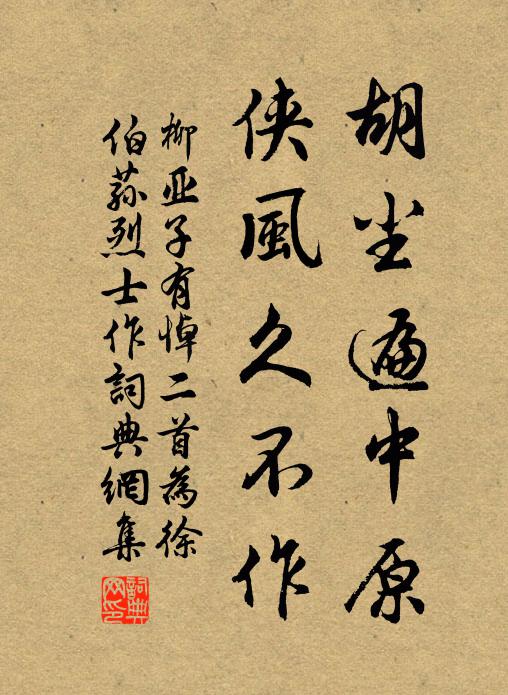 胡尘遍中原
侠風久不作
柳亚子有悼二首為徐
伯荪烈士作詞典網集
詞典网印